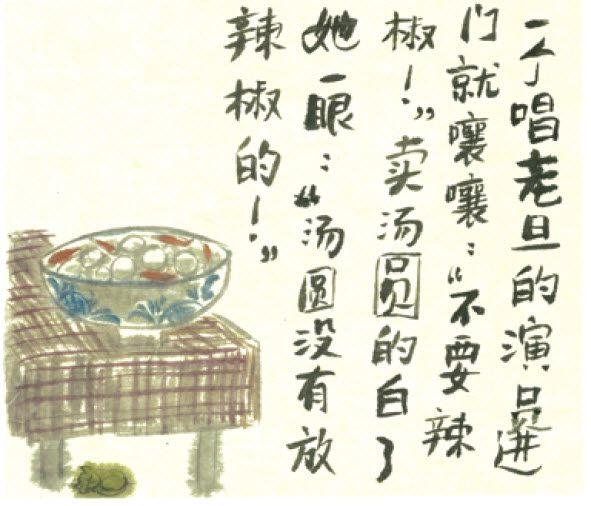 一个唱老旦的演员進
门就嚷嚷：“不要辣
椒！”卖汤圆的白了
她一眼：“汤圆没有放
辣椒的！”